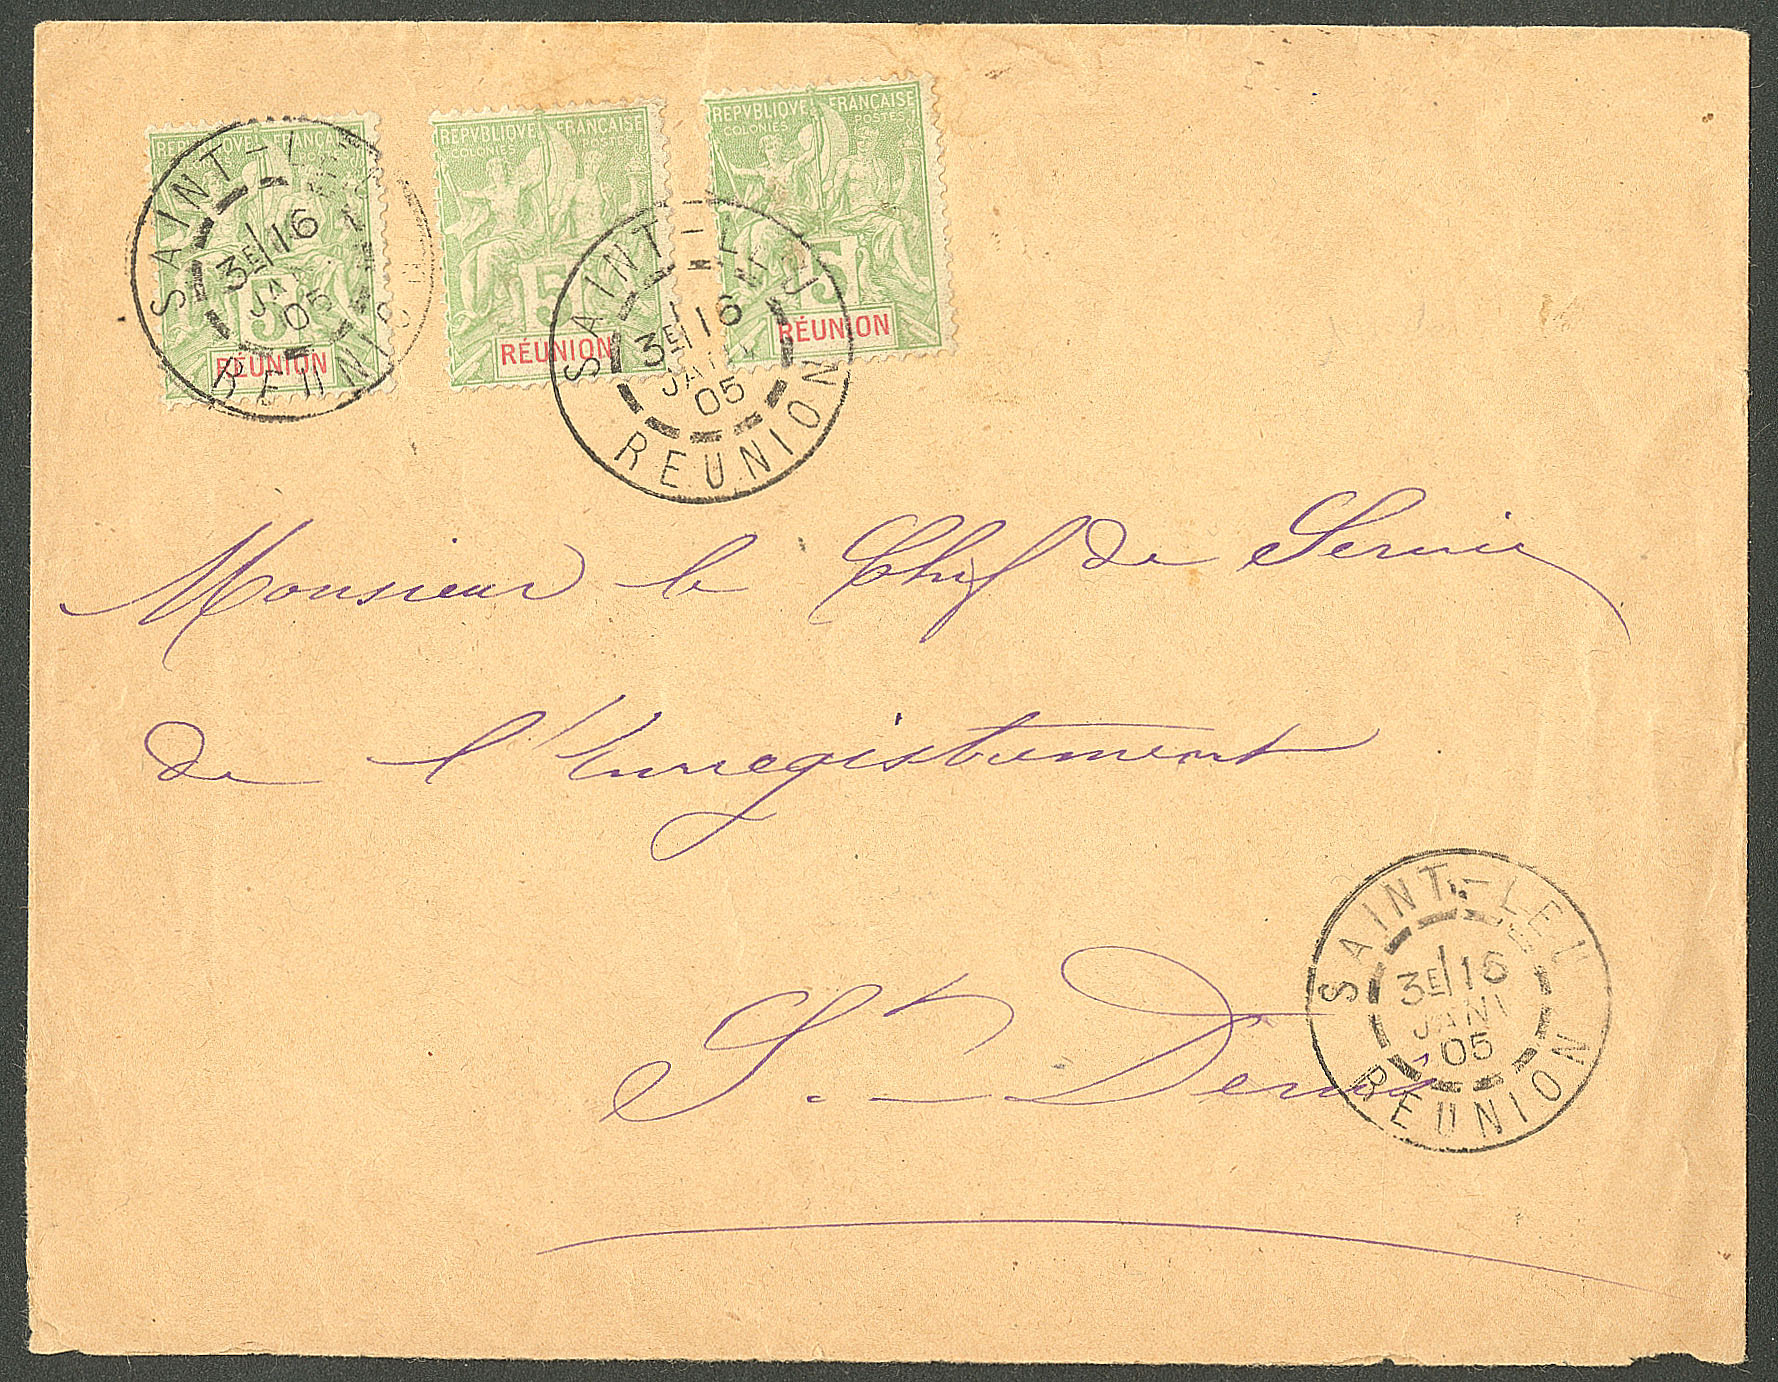 REPVBLIQVE FRANÇAISE
5
RÉUNION
REPVBLIQVE FRANÇAISE
COLONIES POSTES
5
RÉUNION
REPVBLIQVE FRANÇAISE
COLONIES POSTES
5
RÉUNION
SAINT-LEU
3E/16
JANV
05
REUNION
SAINT-LEU
3E/16
JANV
05
REUNION
Monsieur le Chef de Service
de l'Enregistrement
St. Denis
SAINT-LEU
3E/16
JANV
05
REUNION